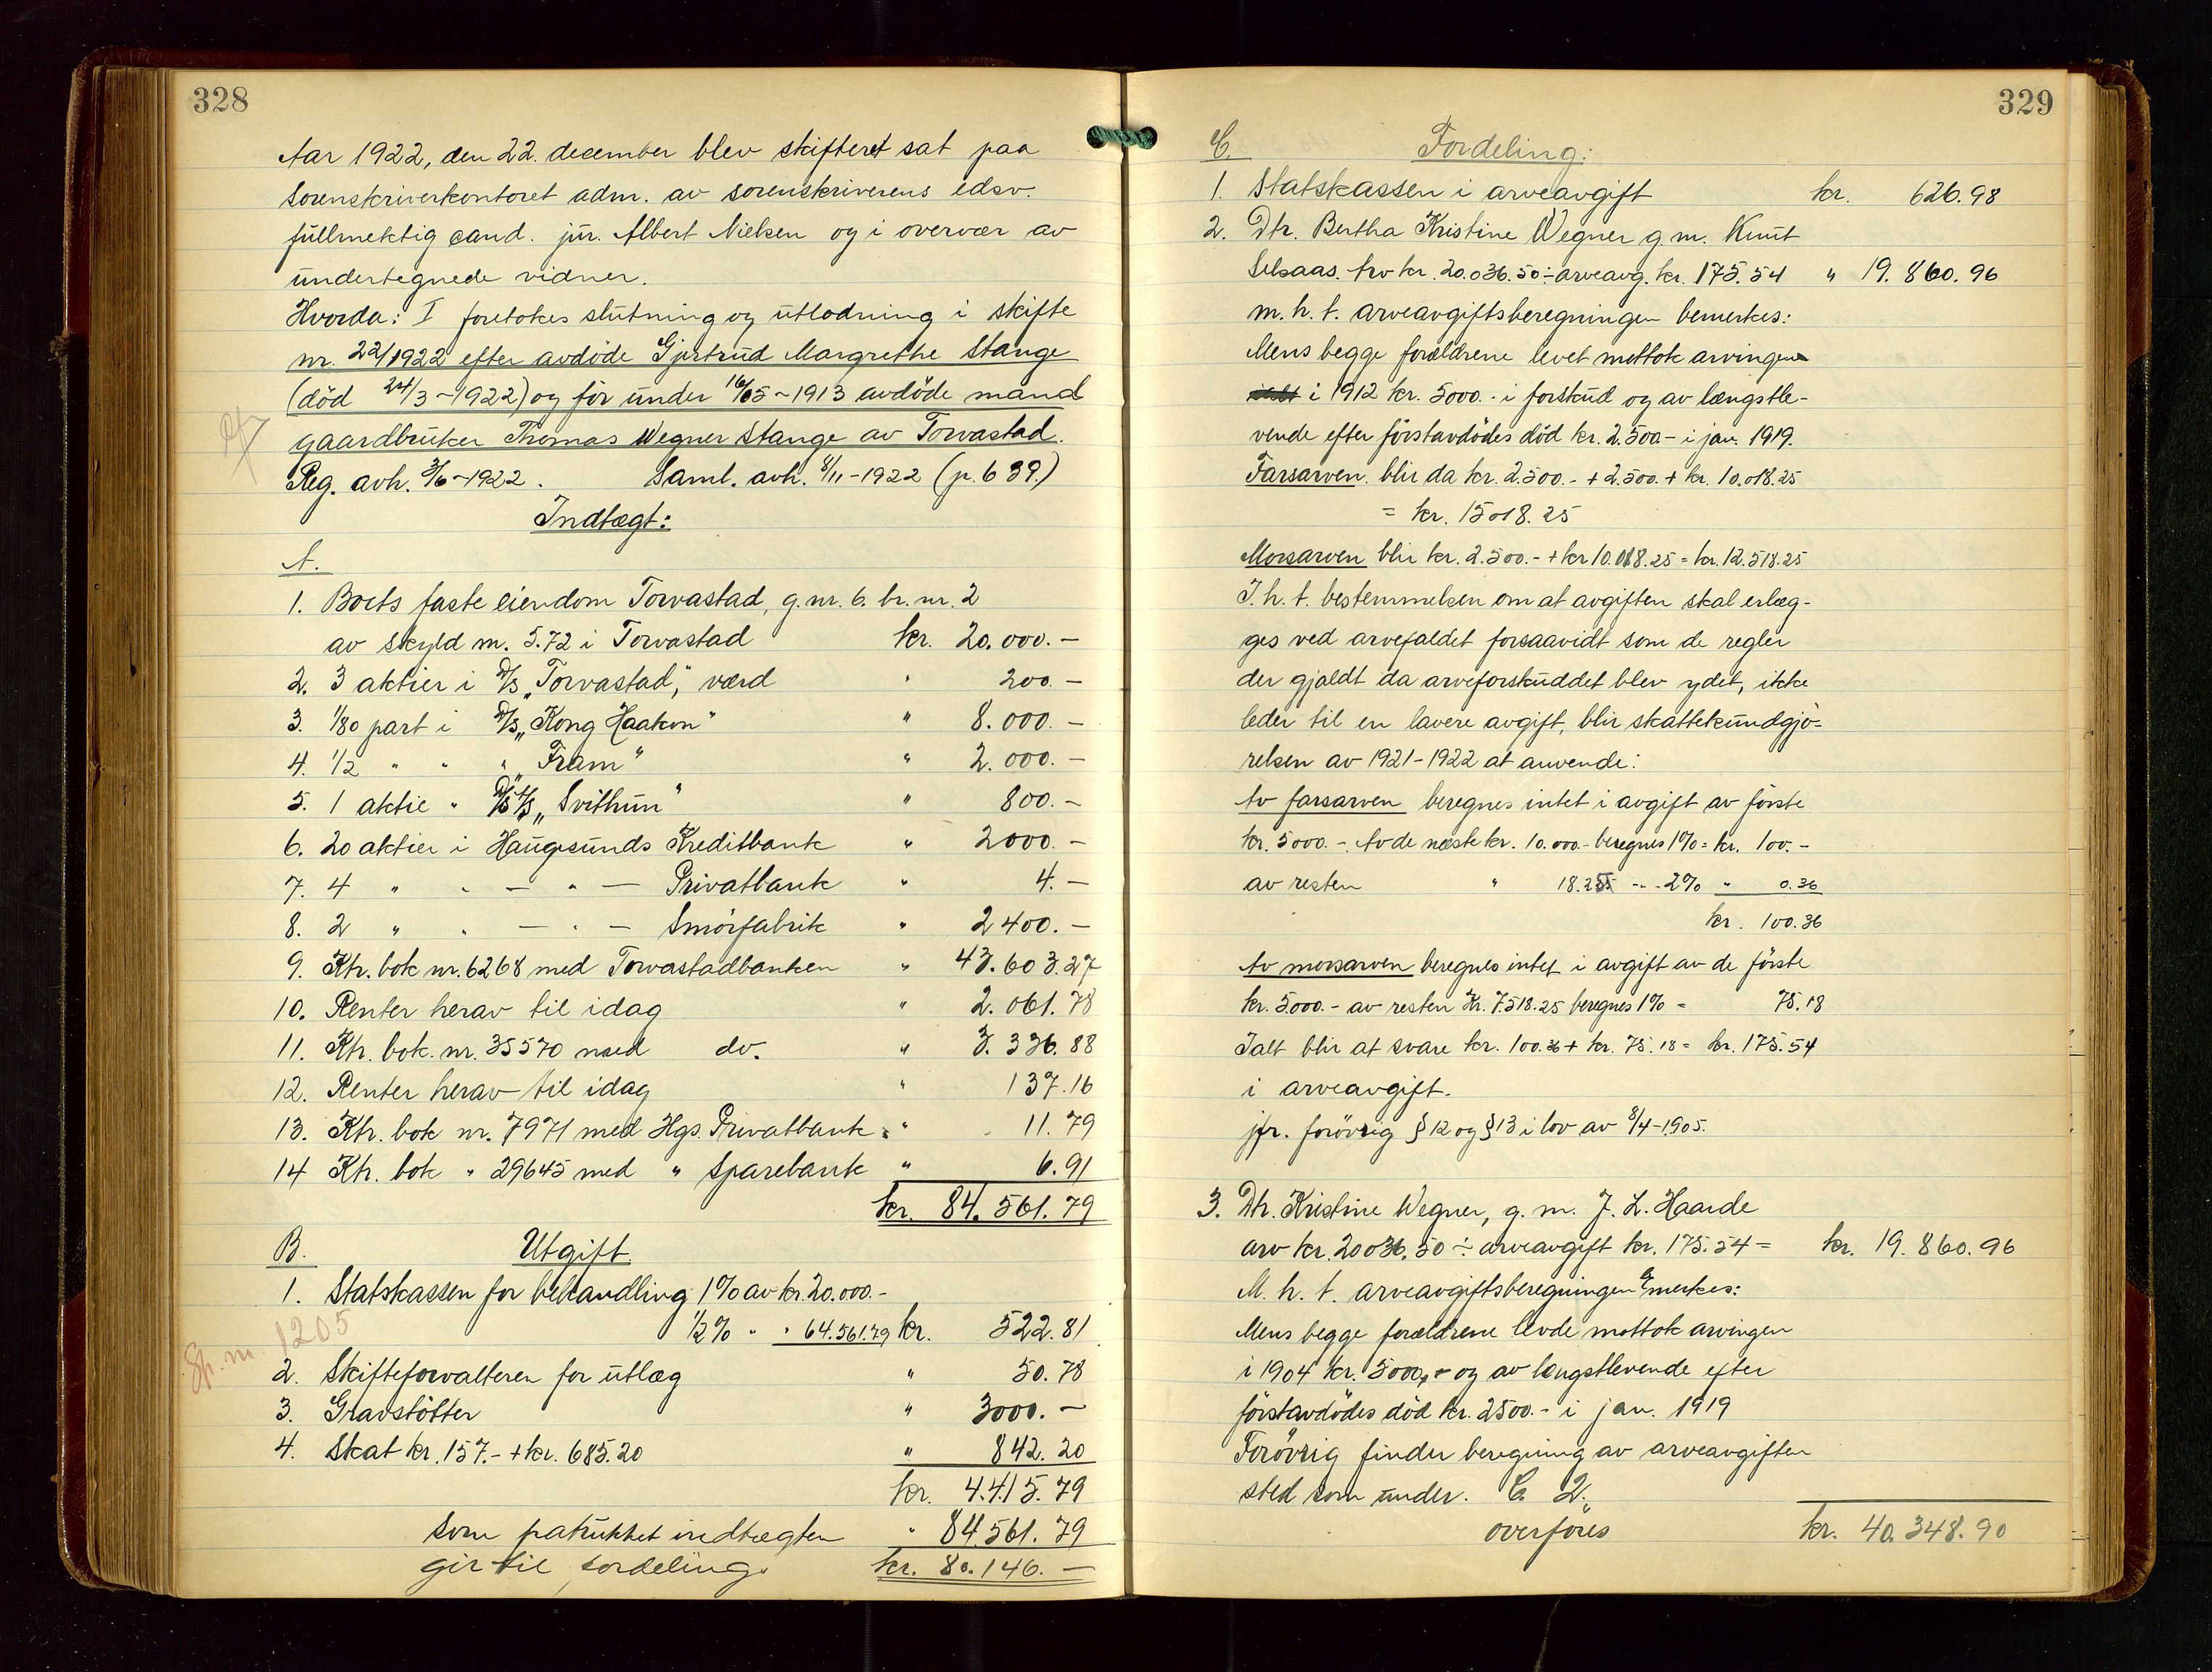 328
Aar 1922, den 22. december blev skifteret sat paa
sorenskriverkontoret adm. av sorenskriverens edsv.
fullmektig cand. jur. Albert Nielsen og i overvær av
undertegnede vidner.
Hvorda: I foretokes slutning og utlodning i skifte
nr. 22/1922 efter avdöde Gjertrud Margrethe Stange
(död 24/3-1922) og för under 16/5-1913 avdöde mand
gaardbruker Thomas Wegner Stange av Torvastad.
Reg. avh. 3/6-1922. Saml. avh. 8/11-1922 (p. 639.)
Indtægt:
A.
1. Boets faste eiendom Torvastad, g.nr. 6. br.nr. 2
av skyld m. 5.72 i Torvastad kr. 20.000.-
2. 3 aktier i D/S „Torvastad", værd " 200.-
3. 1/80 part i D/S „Kong Haakon" " 8.000.-
4. 1/2 " " " „Fram" " 2.000.-
5. 1 aktie " D/S A/S „Svithun" " 800.-
6. 20 aktier i Haugesunds Kreditbank " 2000.-
7. 4 " " — " — Privatbank " 4.-
8. 2 " " — " — Smörfabrik " 2400.-
9. Ktr. bok nr. 6268 med Torvastadbanken " 43.603.27
10. Renter herav til idag " 2.061.78
11. Ktr. bok. nr. 35570 med do. " 3.336.88
12. Renter herav til idag " 137.16
13. Ktr. bok nr. 7971 med Hgs. Privatbank " 11.79
14 Ktr. bok " 29645 med " Sparebank " 6.91
kr. 84.561.79
B. Utgift
1. Statskassen for behandling 1% av kr. 20.000.-
1/2% " " 64.561.79 kr. 522.81
2. Skifteforvalteren for utlæg " 50.78
3. Gravstötter " 3000.-
4. Skat kr. 157.- + kr. 685.20 " 842.20
kr. 4.415.79
som fratrukket indtægten " 84.561.79
gir til fordeling. kr. 80.146.-
1205
329
C. Fordeling:
1. Statskassen i arveavgift kr. 626.98
2. Dtr. Bertha Kristine Wegner g.m. Knut
Selsaas. Arv kr. 20.036.50 ÷ arveavg. kr. 175.54 " 19.860.96
m. h. t. arveavgiftsberegningen bemerkes:
Mens begge forældrene levet mottok arvingen
i 1912 kr. 5000.- i forskud og av længstle-
vende efter förstavdödes död kr. 2.500.- i jan. 1919.
Farsarven blir da kr. 2.500.- + 2.500.+ kr. 10.018.25
= kr. 15018.25
Morsarven blir kr. 2.500.- + kr 10.018.25 = kr. 12.518.25
I. h. t. bestemmelsen om at avgiften skal erlæg-
ges ved arvefaldet forsaavidt som de regler
der gjaldt da arveforskuddet blev ydet, ikke
leder til en lavere avgift, blir skattekundgjö-
relsen av 1921-1922 at anvende:
Av farsarven beregnes intet i avgift av förste
kr. 5000.-. Av de næste kr. 10.000.- beregnes 1% = kr. 100.-
av resten " 18.25 - " - 2% " 0.36
kr. 100.36
Av morsarven beregnes intet i avgift av de förste
kr. 5.000.- av resten Kr. 7.518.25 beregnes 1% = 75.18
Ialt blir at svare kr. 100.36 + kr. 75.18 = kr. 175.54
i arveavgift.
jfr. forövrig § 12 og § 13 i lov av 8/4-1905.
3. Dtr. Kristine Wegner, g. m. J. L. Haarde
arv kr. 20036.50 ÷ arveavgift kr. 175.54 = kr. 19.860.96
M. h. t. arveavgiftsberegningen bemerkes:
Mens begge forældrene levde mottok arvingen
i 1904 kr. 5000,- og av længstlevende efter
förstavdödes död kr. 2500.- i jan. 1919
Forövrig finder beregning av arveavgiften
sted som under. C. 2.
overföres kr. 40.348.90